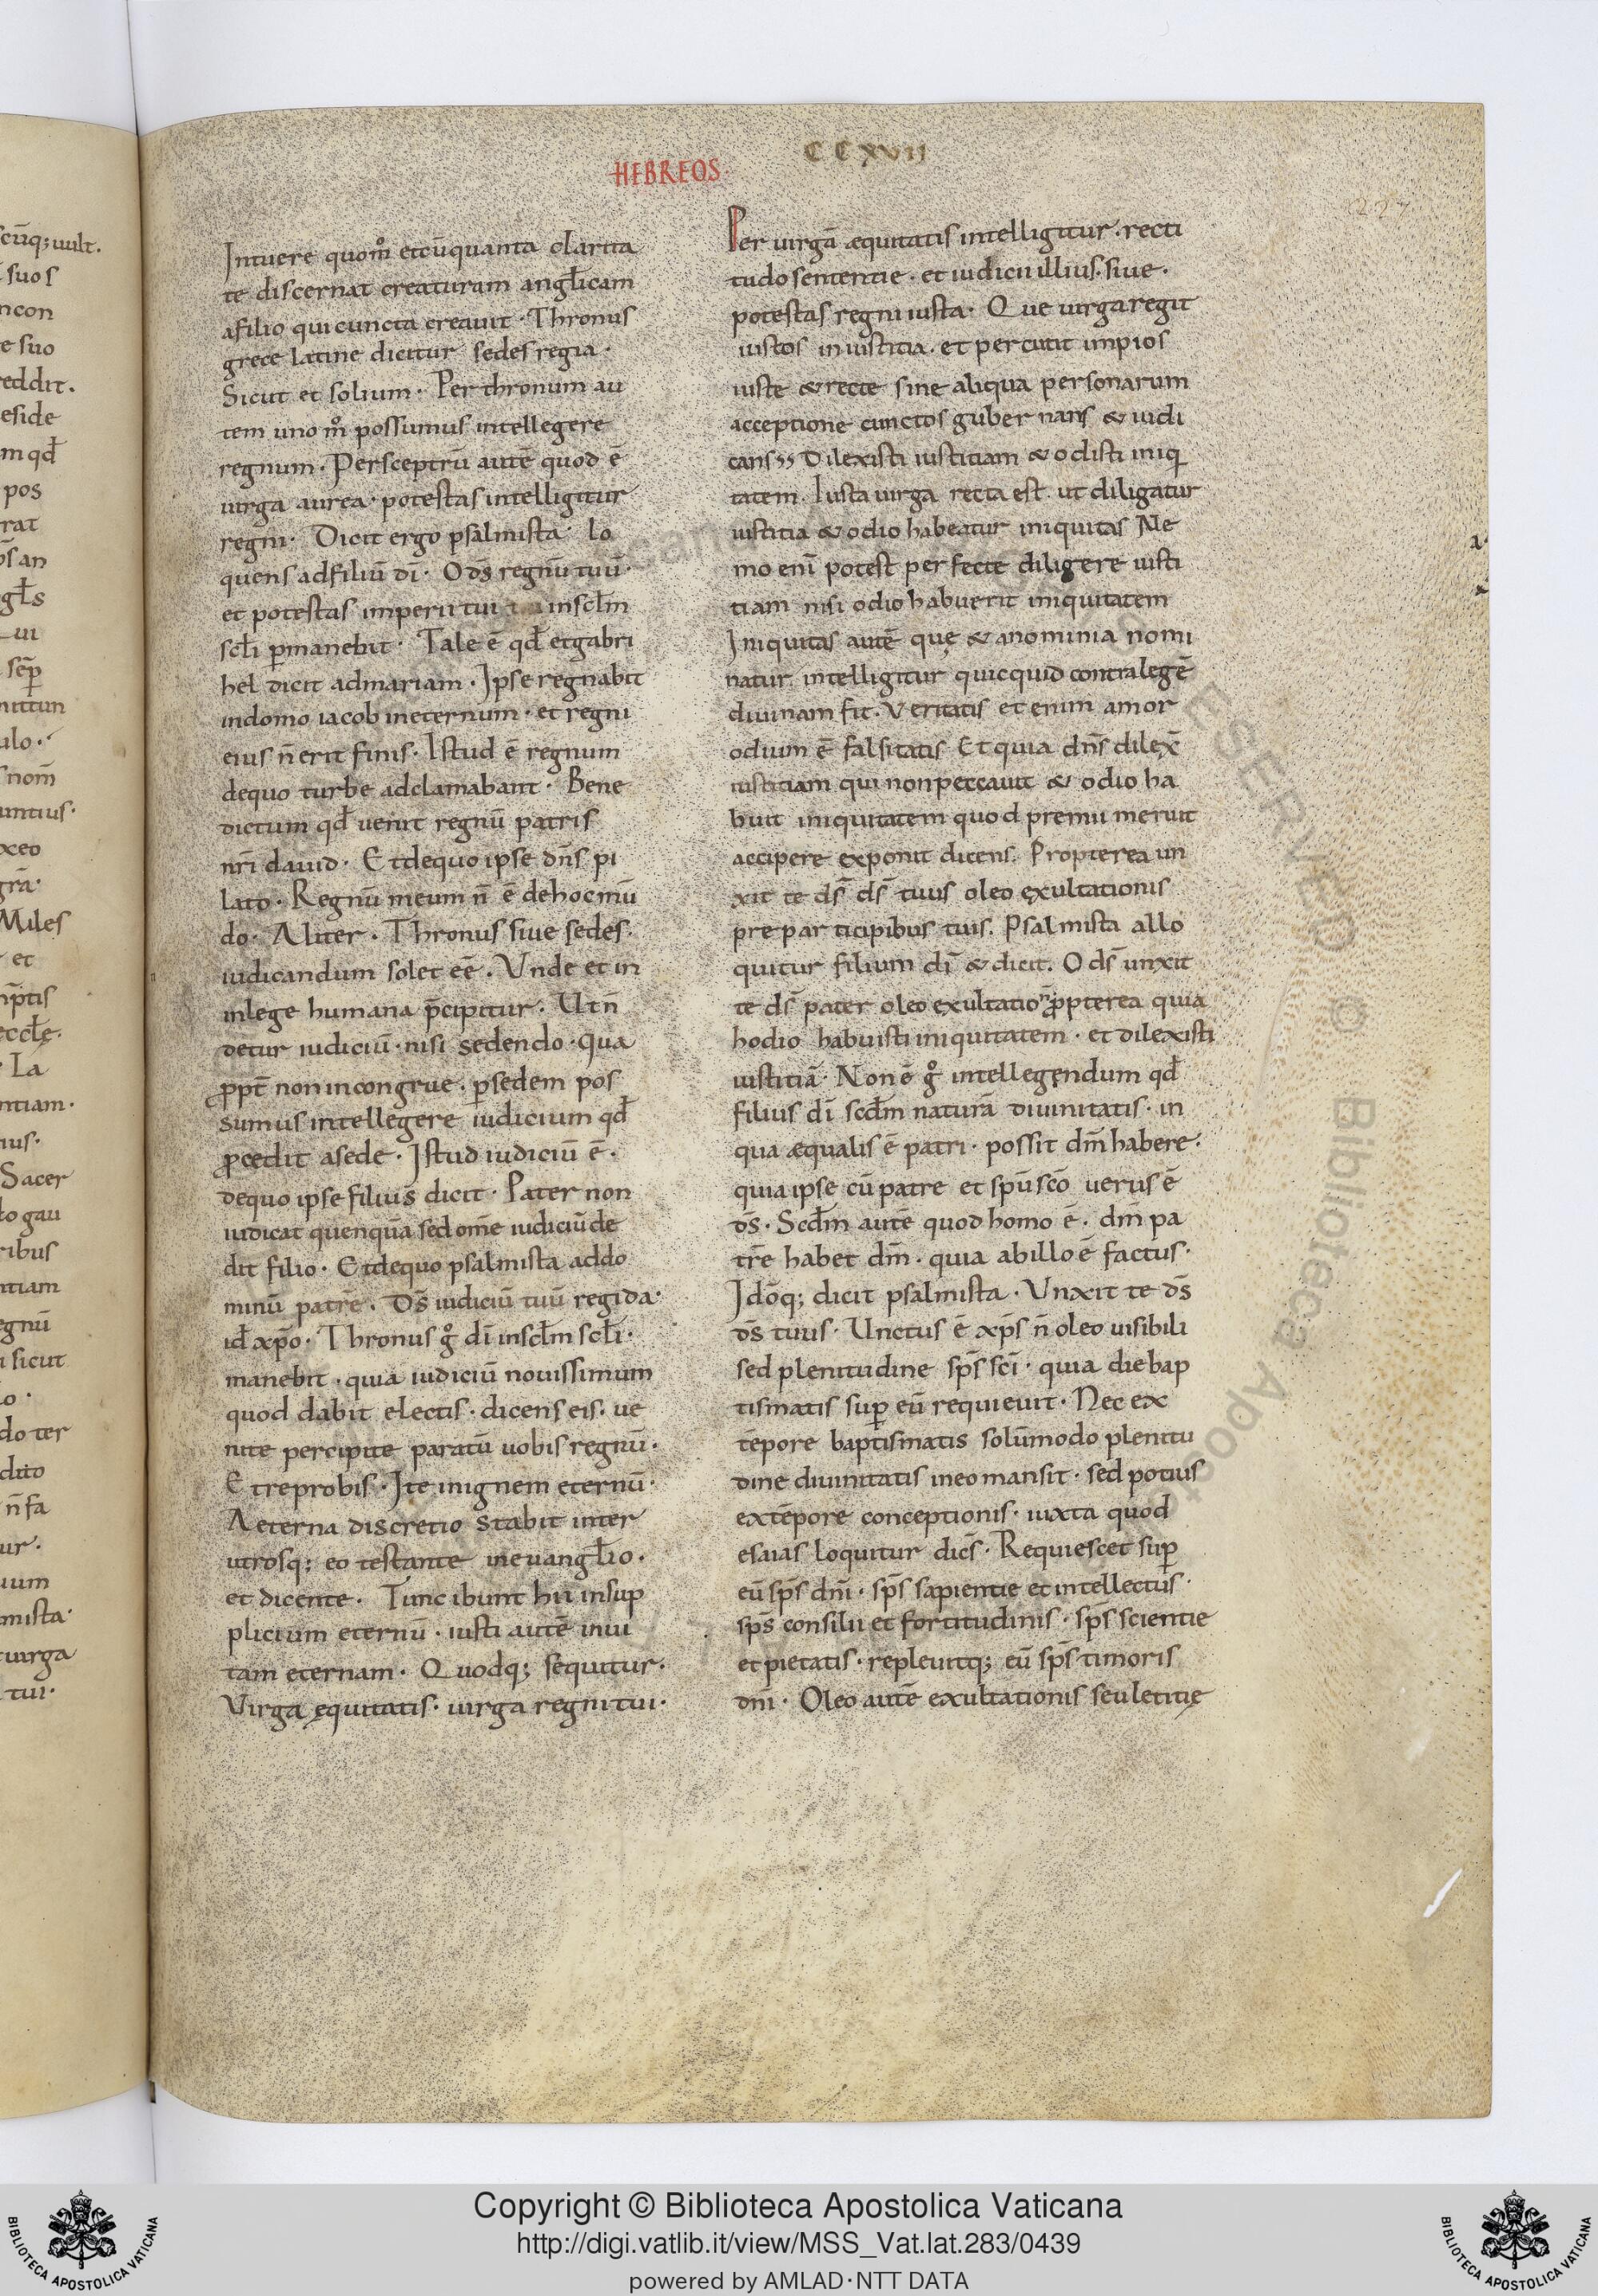 scūq; uult.
suos
ncon
e suo
reddit.
eside
m qđ
pos
rat
ōs an
gl̄s
ui
sēp̱
mittun
ulo.
s nom̄
untius.
xeo
grā.
Miles
et
np̄tis
eccl̄ę.
La
ntiam.
ius.
Sacer
to gau
ribus
ntiam
egnū
sicut
lo.
do ter
dito
n̄ fa
ur.
uum
mista.
uirga
tui.
HEBREOS
CCXVII
227
Intuere quom̊ et cū quanta clarita
te discernat creaturam angl̄icam
afilio qui cuncta creauit. Thronus
grece latine dicitur sedes regia.
Sicut et solium. Per thronum au
tem uno m̊ possumus intellegere
regnum. Per sceptrū autē quod ē
uirga aurea. potestas intelligitur
regni. Dicit ergo psalmista lo
quens ad filiū dī. O ds̄ regnū tuū.
et potestas imperii tui in scl̄m
scl̄i p̱manebit. Tale ē qđ et gabri
hel dicit ad mariam. Ipse regnabit
in domo iacob in eternum. et regni
eius n̄ erit finis. Istud ē regnum
de quo turbe adclamabant. Bene
dictum qđ uenit regnū patris
nr̄i dauid. Et de quo ipse dn̄s pi
lato. Regnū meum n̄ ē de hoc mū
do. Aliter. Thronus siue sedes.
iudicandum solet eē. Vnde et in
inlege humana p̄cipitur. Ut n̄
detur iudiciū. nisi sedendo. Qua
ꝓpt̄ non incongrue. p̱ sedem pos
sumus intellegere iudicium qđ
ꝓcedit asede. Istud iudiciū ē.
de quo ipse filius dicit. Pater non
iudicat quenquā sed om̄e iudiciū de
dit filio. Et de quo psalmista ad do
minū patrē. Ds̄ iudiciū tuū regi da.
id̄ xp̄o. Thronus g̊ dī in scl̄m scl̄i.
manebit. quia iudiciū nouissimum
quod dabit electis. dicens eis. ue
nite percipite paratū uobis regnū.
Et reprobis. Ite in ignem eternū.
Aeterna discretio stabit inter
utrosq; eo testante in euangl̄io.
et dicente. Tunc ibunt hii in sup
plicium eternū. iusti autē in ui
tam eternam. Quodq; sequitur.
Virga ęquitatis. uirga regni tui.
Per uirgā æquitatis intelligitur. recti
tudo sententie. et iudicii illius. siue.
potestas regni iusta. Que uirga regit
iustos in iustitia. et percutit impios
iuste & recte sine aliqua personarum
acceptione cunctos gubernans & iudi
cans ss Dilexisti iustitiam & odisti iniq
tatem. Iusta uirga recta est. ut diligatur
iustitia & odio habeatur iniquitas Ne
mo enī potest perfecte diligere iusti
tiam nisi odio habuerit iniquitatem
Iniquitas autē quę & anominia nomi
natur. intelligitur quicquid contra legē
diuinam fit. Veritatis et enim amor
odium ē falsitatis Et quia dn̄s dilex̄
iustitiam qui non peccauit & odio ha
buit iniquitatem quod premii meruit
accipere exponit dicens. Propterea un
xit te ds̄ ds̄ tuus oleo exultationis
pre participibus tuis. Psalmista allo
quitur filium dī & dicit. O ds̄ unxit
te ds̄ pater oleo exultatioīs ꝓpterea quia
hodio habuisti iniquitatem. et dilexisti
iustitiā. Non ē g̊ intellegendum qđ
filius dī scd̄m naturā diuinitatis. in
qua æqualis ē patri. possit dm̄ habere.
quia ipse cū patre et spū scō uerus ē
ds̄. Scd̄m autē quod homo ē. dm̄ pa
trē habet dm̄. quia ab illo ē factus.
Idōq; dicit psalmista. Vnxit te ds̄
ds̄ tuus. Unctus ē xp̄s n̄ oleo uisibili
sed plenitudine sp̄s scī. quia die bap
tismatis sup̱ eū requieuit. Nec ex
tēpore baptismatis solūmodo plenitu
dine diuinitatis in eo mansit. sed potius
ex tēpore conceptionis. iuxta quod
esaias loquitur dic̄s. Requiescet sup̱
eū sp̄s dn̄i. sp̄s sapientie et intellectus.
sp̄s consilii et fortitudinis. sp̄s scientie
et pietatis. repleuitq; eū sp̄s timoris
dn̄i. Oleo autē exultationis seu letitię
Copyright © Biblioteca Apostolica Vaticana
http://digi.vatlib.it/view/MSS_Vat.lat.283/0439
powered by AMLAD·NTT DATA
BIBLIOTECA APOSTOLICA VATICANA
BIBLIOTECA APOSTOLICA VATICANA